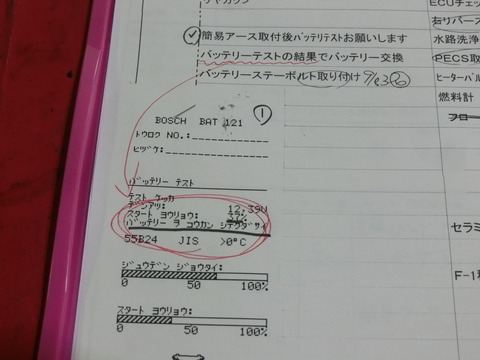 ECUチェッ
右サバース
簡易アース取付後バッテリテストお願いします
水路洗浄
バッテリーテストの結果でバッテリー交換
PECS取
バッテリーステーボルト取り付け
ヒーターバル
燃料計
①
BOSCH BAT 121
トウロク NO.:
ヒヅケ:
バッテリー テスト
テスト ケッカ
デンアツ: 12.39V
スタート ヨウリョウ:
バッテリー ヲ コウカン シテクダサイ
55B24 JIS >0°C
ジュウデン ジョウタイ:
0 50 100%
スタート ヨウリョウ:
0 50 100%
セラミ
F-1